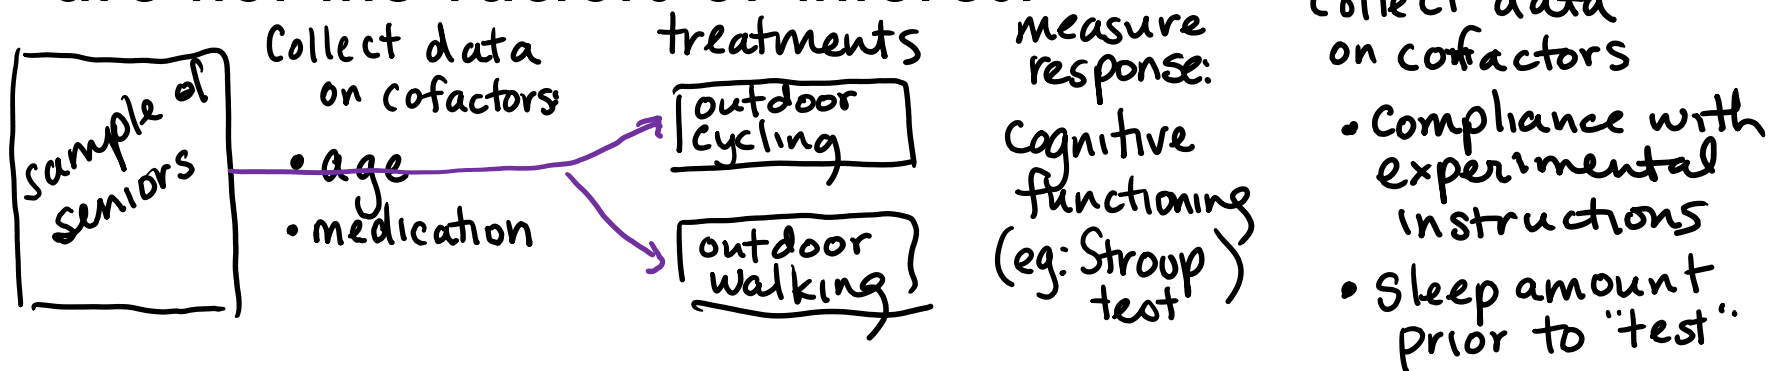 are not the factors of interest.
sample of
seniors
Collect data
on cofactors:
• age
• medication
treatments
outdoor
cycling
outdoor
walking
measure
response:
Cognitive
functioning
(eg: Stroup
test)
Collect data
on cofactors
• Compliance with
experimental
instructions
• Sleep amount
prior to "test".